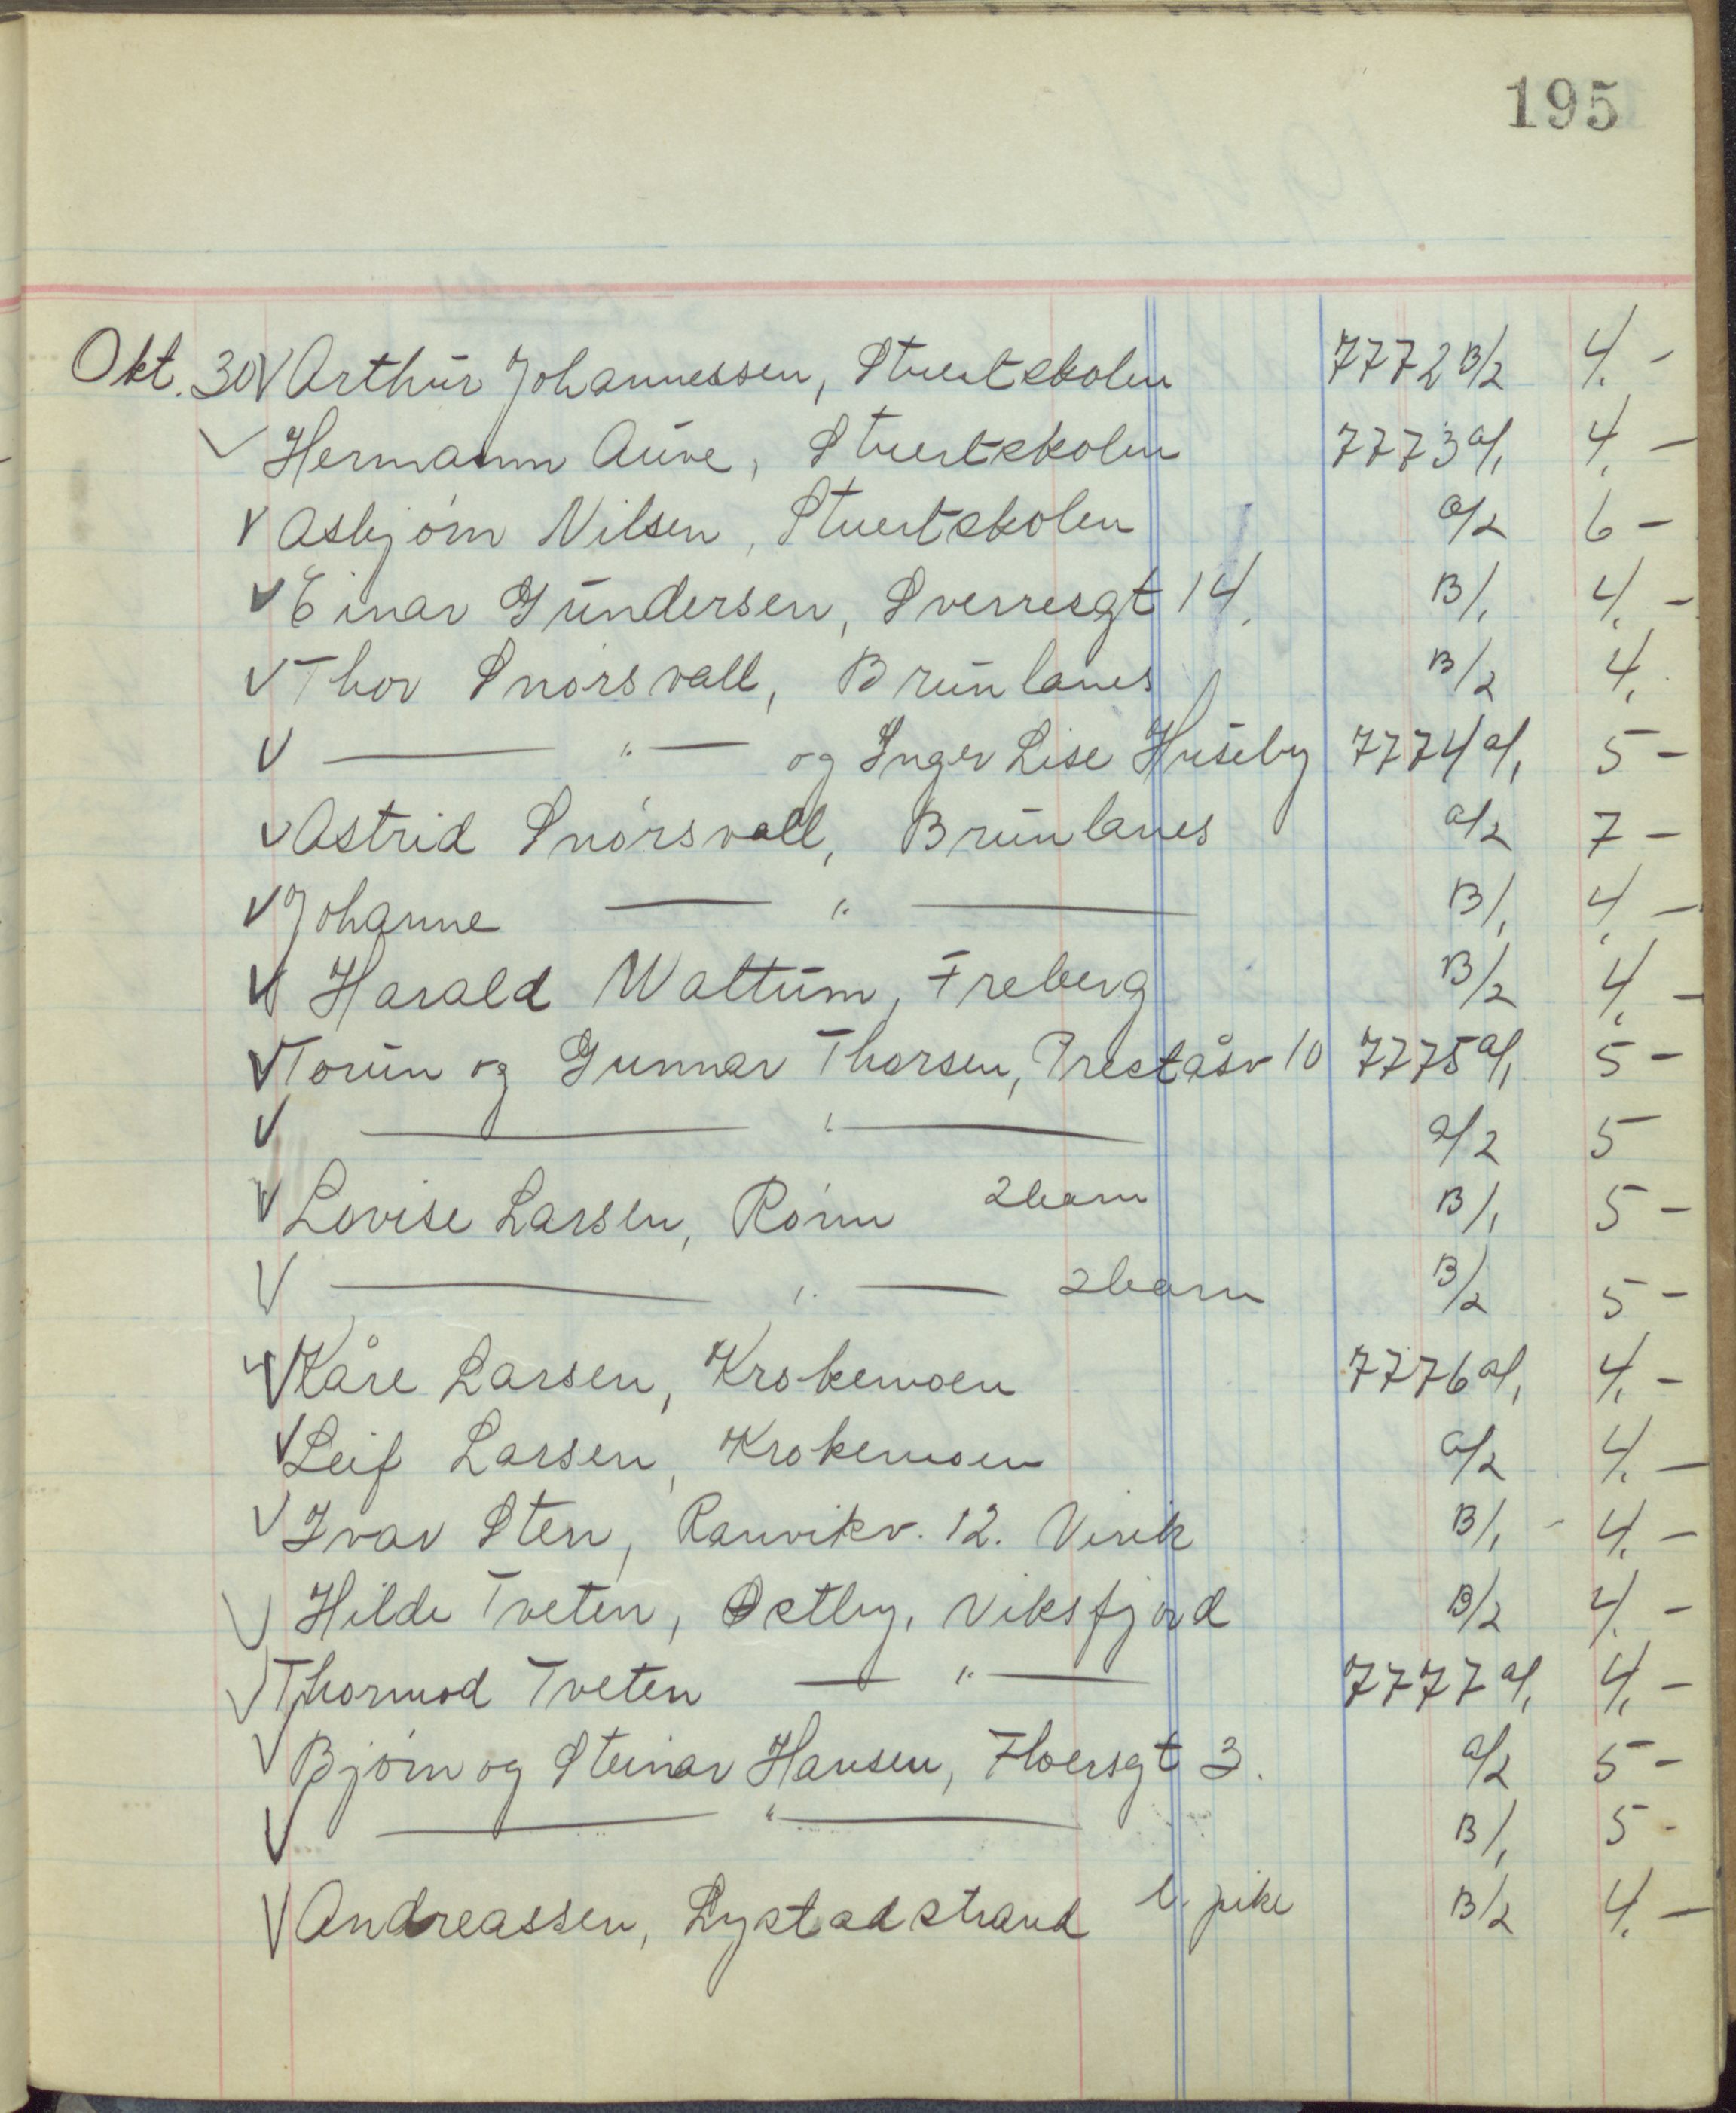 195
Okt. 30 V Arthur Johannessen, Stuertskolen 7772 B/2 4,-
V Hermann Aure, Stuertskolen 7773 a/1 4,-
V Asbjørn Nilsen, Stuertskolen a/2 6 -
V Einar Gundersen, Sverresgt 14. B/1 4,-
V Thor Snørsvall, Brunlanes B/2 4,
V — " — og Inger Lise Huseby 7774 a/1 5 -
V Astrid Snørsvall, Brunlanes a/2 7 -
V Johanne — " — B/1 4,-
V Harald Wattum, Freberg B/2 4,-
V Torun og Gunnar Thorsen, Preståsv 10 7775 a/1 5 -
V — " — a/2 5
V Lovise Larsen, Rønn 2 barn B/1 5 -
V — " — 2 barn B/2 5 -
V Kåre Larsen, Krokemoen 7776 a/1 4,-
V Leif Larsen, Krokemoen a/2 4,-
V Ivar Sten, Ranvikv. 12. Virik B/1 - 4,-
V Hilde Tveten, Østby, Viksfjord B/2 4,-
V Thormod Tveten — " — 7777 a/1 4,-
V Bjørn og Steinar Hansen, Floersgt 3. a/2 5 -
V — " — B/1 5 -
V Andreassen, Lystadstrand l. pike B/2 4,-